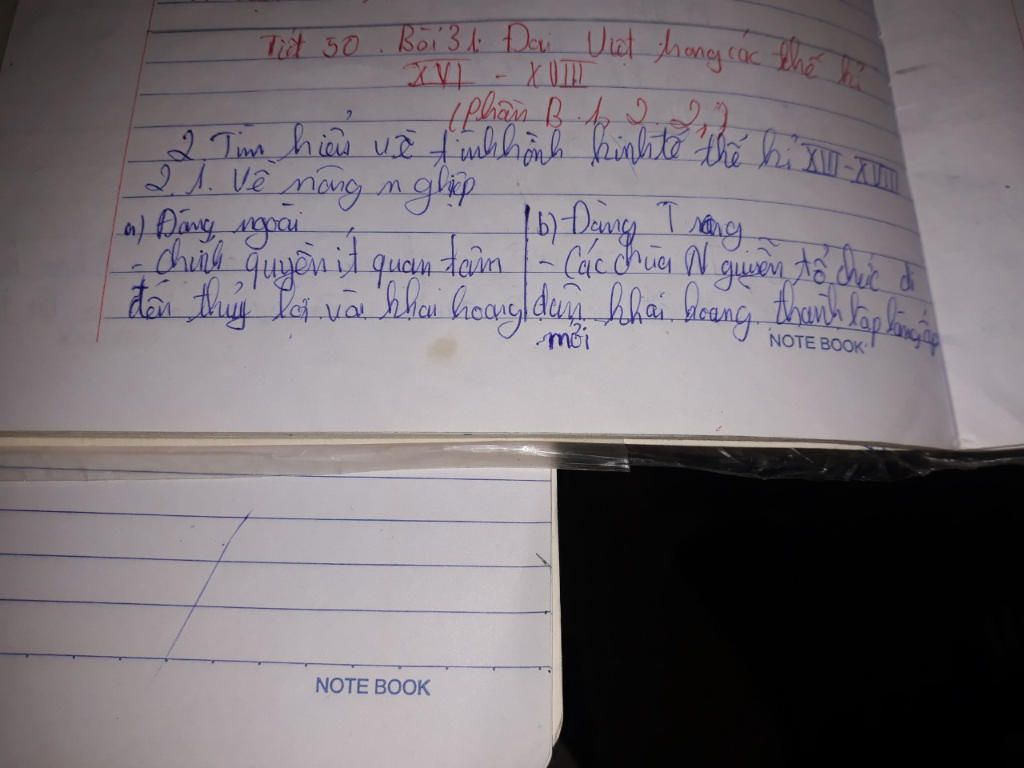 Tiết 50. Bài 31: Đại Việt trong các thế kỉ
XVI - XVIII
(Phần B. 1, 2, 2,)
2. Tìm hiểu về tình hình kinh tế thế kỉ XVI-XVIII
2.1. Về nông nghiệp
a) Đàng ngoài
- Chính quyền ít quan tâm
đến thủy lợi và khai hoang
b) Đàng Trong
- Các chúa Nguyễn tổ chức di
dân khai hoang thành lập làng ấp
mới
NOTE BOOK
NOTE BOOK